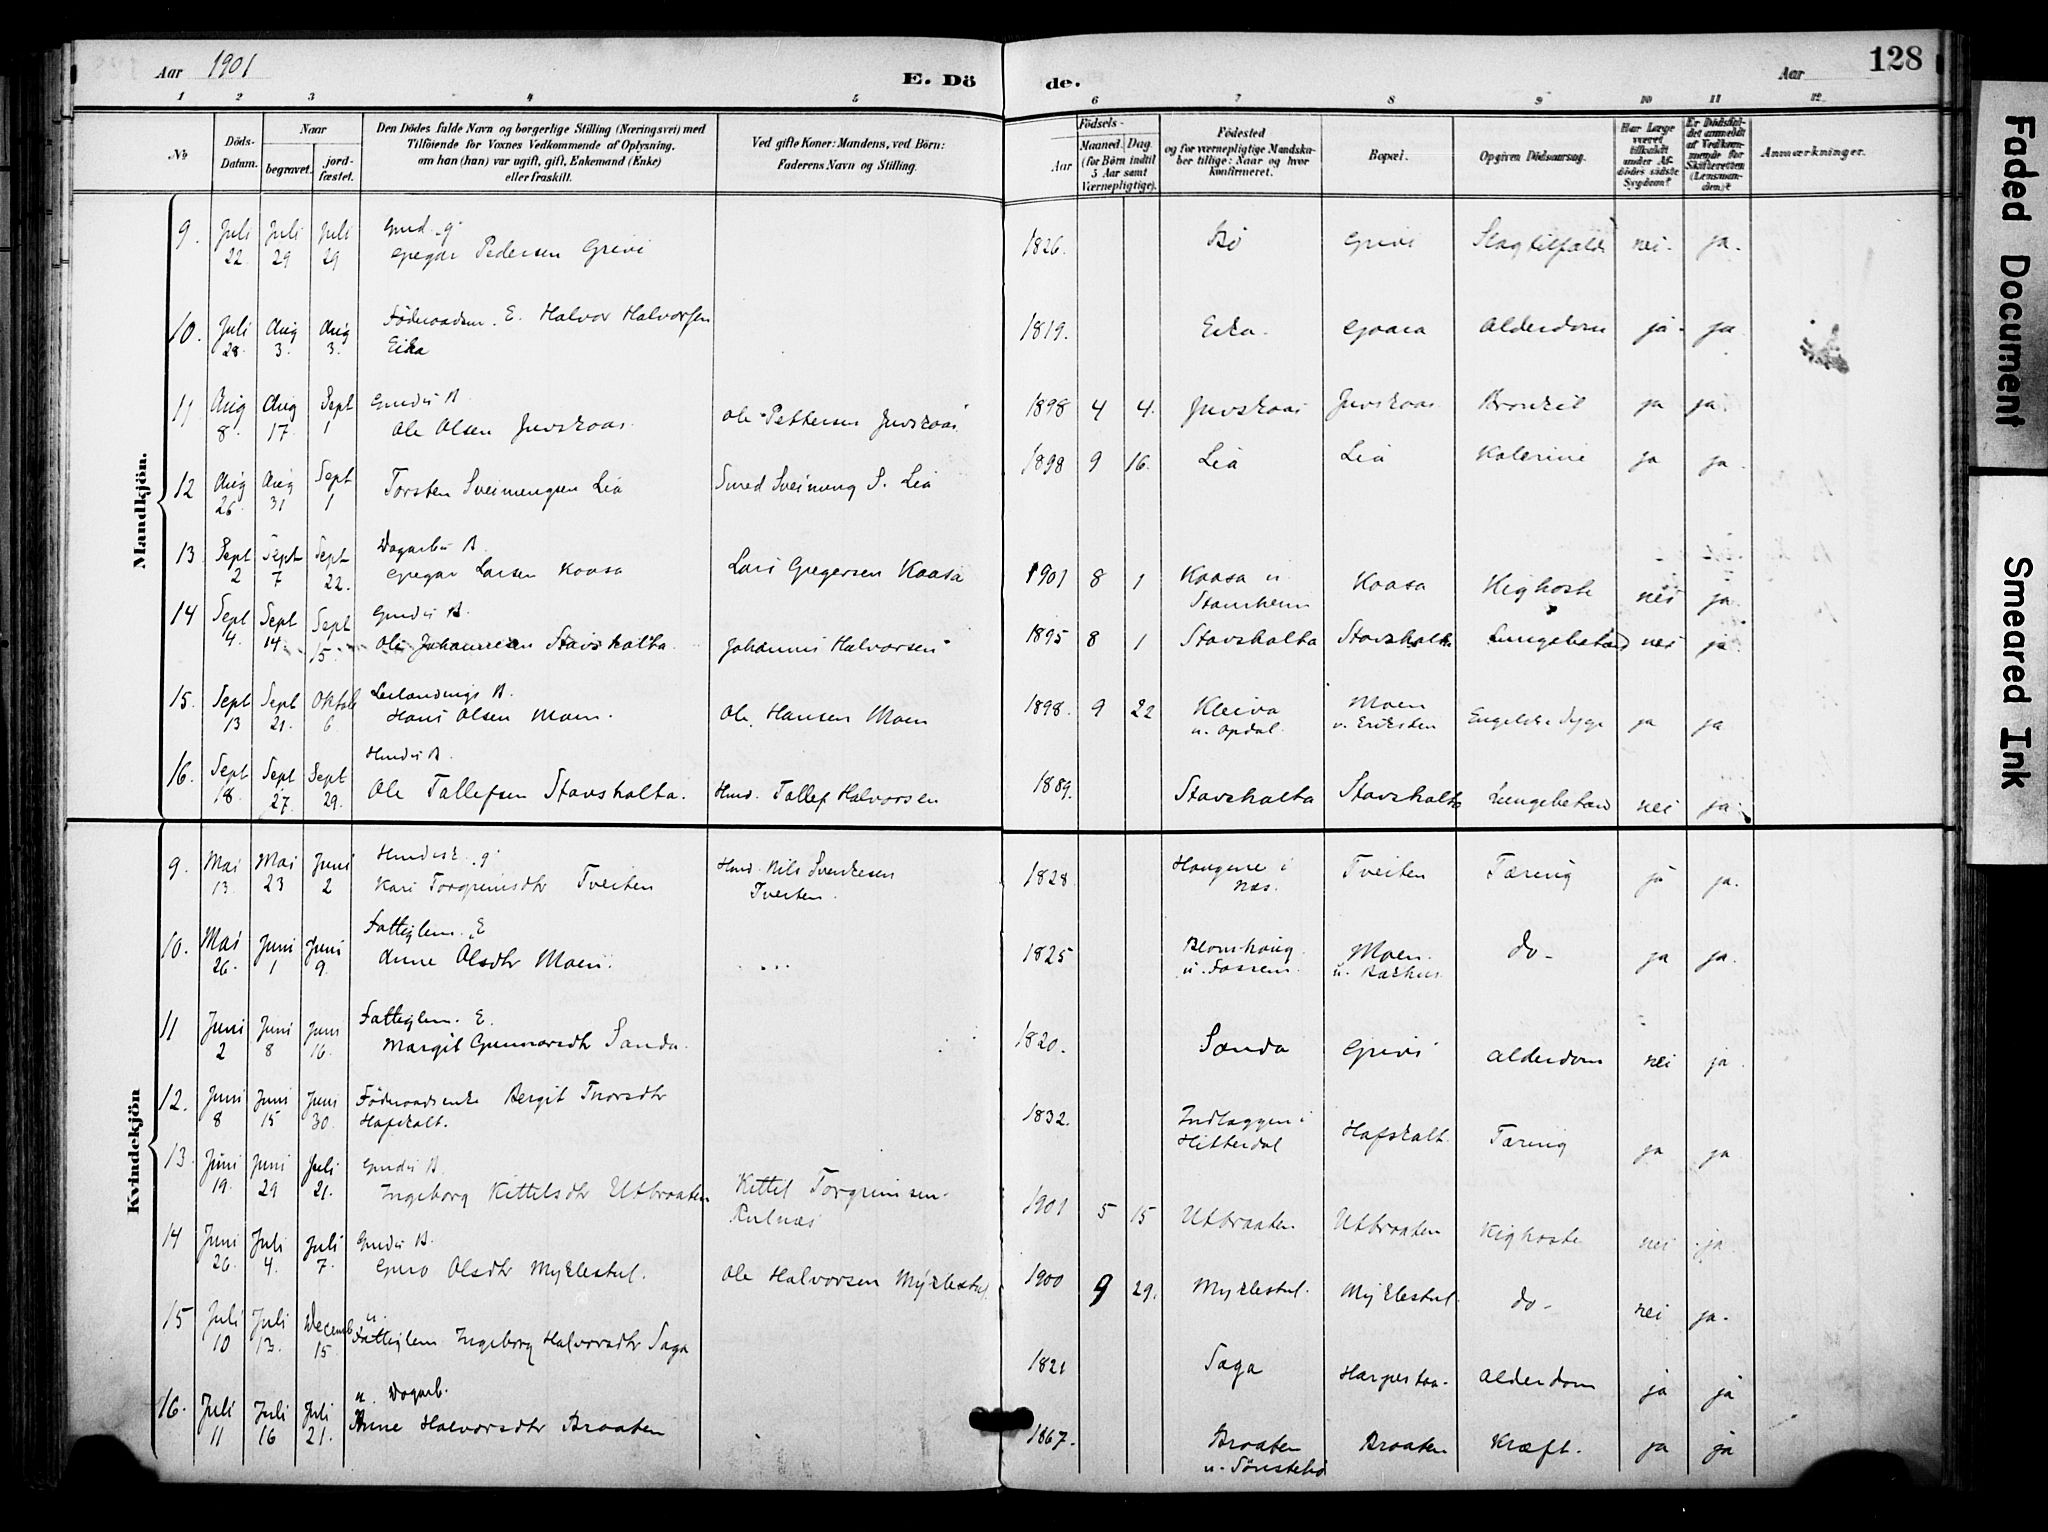 Aar 1901
E. Dö
de.
Aar
128
Faded Document
Smeared Ink
1 2 3 4 5 6 7 8 9 10 11 12
No
Döds-
Datum.
Naar
begravet.
jord-
fæstet.
Den Dödes fulde Navn og borgerlige Stilling (Næringsvei) med
Tilföiende for Voxnes Vedkommende af Oplysning,
om han (hun) var ugift, gift, Enkemand (Enke)
eller fraskilt.
Ved gifte Koner: Mandens, ved Börn:
Faderens Navn og Stilling.
Födsels-
Aar
Maaned. Dag
(for Börn indtil
5 Aar samt
Værnepligtige).
Födested
og for værnepligtige Mandska-
ber tillige: Naar og hvor
konfirmeret.
Bopæl.
Opgiven Dödsaarsag.
Har Læge
været
tilkaldt
under Af-
dödes sidste
Sygdom?
Er Dödsfal-
det anmeldt
af Vedkom-
mende for
Skifteretten
(Lensman-
den)?
Anmærkninger.
Mandkjön.
9. Juli 22 Juli 29 Juli 29 Gmd. g. Gregar Pedersen Grivi 1826. Bö Grivi Slagtilfælde nei. ja.
10. Juli 28. Aug 3. Aug 3. Föderaadsm. E. Halvor Halvorsen
Eika 1819. Eika. Gaara Alderdom ja. ja.
11 Aug 8. Aug 17. Sept 1 Gmdis B. Ole Olsen Juvskaas. Ole Pettersen Juvskaas 1898 4 4. Juvskaas Juvskaas Bronkit ja ja.
12 Aug 26. Aug 31 Sept 1 Torsten Sveinungsen Lia Smed Sveinung S. Lia 1898 9 16. Lia Lia Katerine ja ja.
13 Sept 2 Sept 7 Sept 22. Dagarb. B. Gregar Larsen Kaasa Lars Gregersen Kaasa 1901 8 1 Kaasa u. Stamheim Kaasa Kighoste nei ja.
14 Sept 4. Sept 14. Sept 15. Gmdis B. Ole Johannesen Stavsholta. Johannes Halvorsen 1895 8 1 Stavsholta Stavsholta Lungebetænd nei ja
15. Sept 13 Sept 21. Oktob 6 Leilændings B. Hans Olsen Moen. Ole Hansen Moen 1898. 9 22 Kleiva u. Opdal. Moen u. Eriksten Engelske Syge ja ja
16. Sept 18. Sept 27. Sept 29. Hmdis B. Ole Tallefsen Stavsholta. Hmd. Tallef Halvorsen 1889. Stavsholta Stavsholta Lungebetænd nei ja.
Kvindekjön
9. Mai 13. Mai 23 Juni 2 Hmdsk. g. Kari Torgrimsdtr Tveiten Hmd. Nils Svenkesen
Tveiten. 1828. Haugene i Næs. Tveiten Tæring ja ja.
10. Mai 26. Juni 1 Juni 9. Fattiglem. E. Anne Olsdtr Moen. .... 1825 Blomhaug u. Fossem. Moen. u. Bækhus. do- ja ja.
11 Juni 2 Juni 8 Juni 16. Fattiglem. E. Margit Gunnarsdtr Sanda. 1820. Sanda Grivi Alderdom nei ja.
12. Juni 8 Juni 15 Juni 30. Föderaadsenke Bergit Thorsdtr
Hafskalt. 1832. Indlæggen i Hitterdal Hafskalt. Tæring ja ja
13. Juni 19. Juni 29 Juli 21. Gmdis B. Ingeborg Kittelsdtr Utbraaten Kittel Torgrimsen 1901 5 15 Utbraaten Utbraaten Kighoste nei ja
14 Juni 26. Juli 4. Juli 7. Gmdis B. Guro Olsdtr Myklestul. Ole Halvorsen Myklestul. 1900 9 29. Myklestul. Myklestul. do- nei ja.
15 Juli 10 Juli 13. Decemb 15. u. Fattiglem Ingeborg Halvorsdtr Saga 1821 Saga Alderdom ja ja
16. Juli 11 Juli 16 Juli 21. u. Dagarb. Anne Halvorsdtr Braaten 1867. Braaten u. Sönstebö Braaten Kræft. ja ja